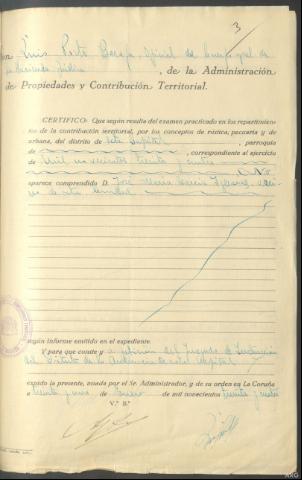 3
Don Luis
, de la Administración
de Propiedades y Contribución Territorial.
CERTIFICO: Que según resulta del examen practicado en los repartimien-
tos de la contribución territorial, por los conceptos de rústica, pecuaria y de
urbana, del distrito de esta capital, parroquia
de , correspondiente al ejercicio
de Mil novecientos treinta y cuatro
, No
aparece comprendido D. José María García
de esta
según informe emitido en el expediente.
Y para que conste y a petición del Juzgado de Instrucción
del Distrito de la Audiencia de esta capital
expido la presente, visada por el Sr. Administrador, y de su orden en La Coruña
a treinta y uno de Enero de mil novecientos treinta y cuatro
V.º B.º